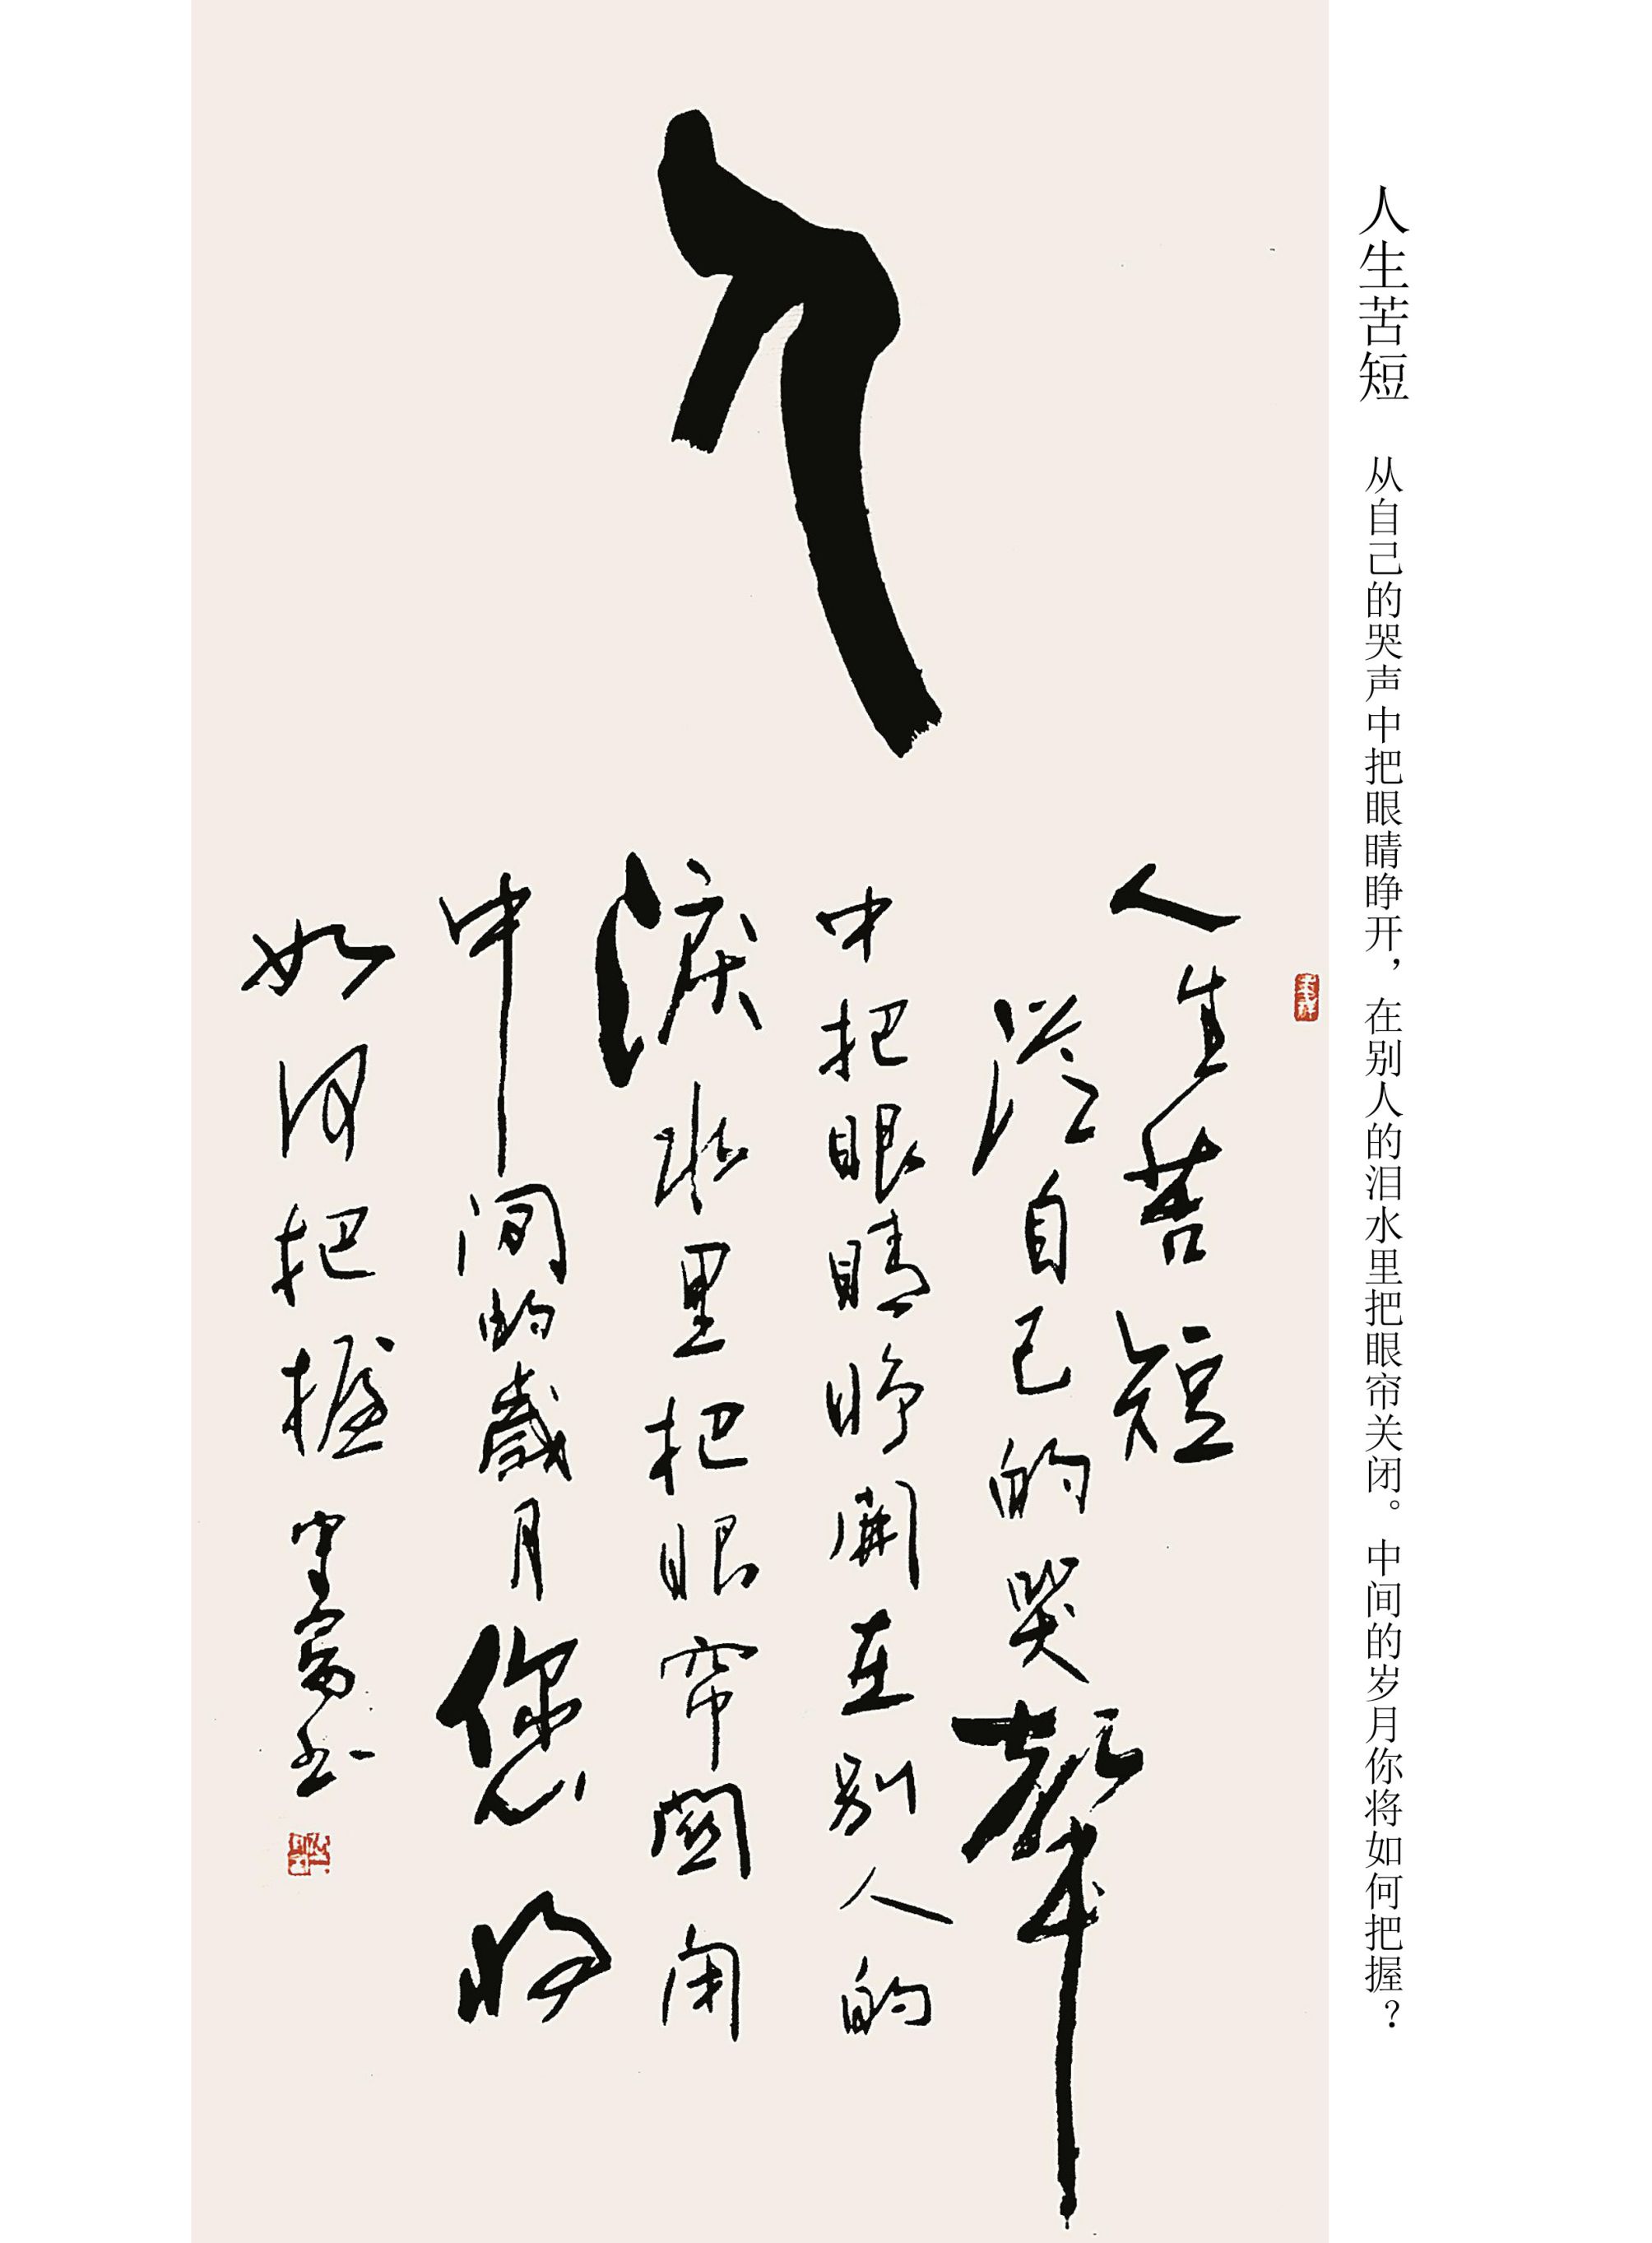 人生苦短 从自己的哭声中把眼睛睁开，在别人的泪水里把眼帘关闭。中间的岁月你将如何把握？
人
人生苦短
從自己的哭聲
中把眼睛睁開在别人的
淚水里把眼帘關闭
中间的歲月您将
如何把握